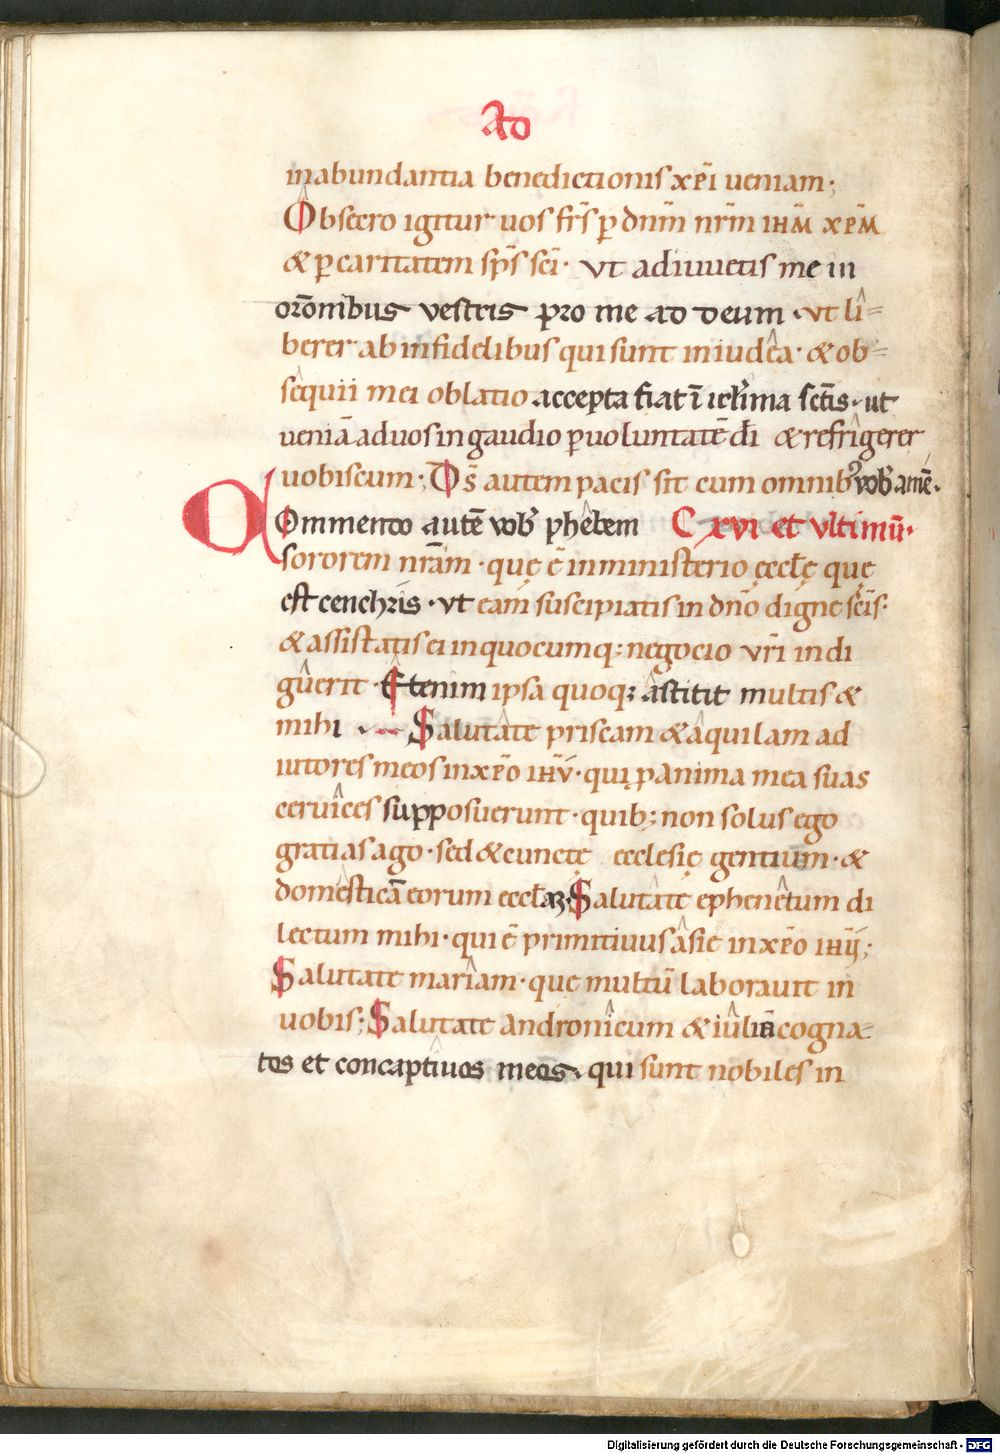 Ad
inabundantia benedictionis xp̄i ueniam;
Obsecro igitur uos fr̄s ꝑ dnm̄ nr̄m ihm̄ xp̄m
& ꝑ caritatem sp̄s sc̄i· vt adiuuetis me in
or̄onibus vestris pro me ad deum · vt li=
berer ab infidelibus qui sunt iniudea· & ob=
sequii mei oblatio accepta fiat ī ierl̄ima sc̄tis · ut
ueniā aduos ingaudio ꝑ uoluntatē dī & refrigerer
uobiscum; Ds̄ autem pacis sit cum omnibꝰ vob̄ amē·
Commendo autē vob̄ phebem C xvi et vltimū·
sororem nr̄am · quę ē inministerio ęccl̄ę quę
est cenchris · vt eam suscipiatis in dn̄o digne sc̄is·
& assistatis ei inquocumq; negocio vr̄i indi
guerit · Etenim ipsa quoq; astitit multis &
mihi · Salutate priscam & aquilam ad
iutores meos inxp̄o ihū· qui ꝑ anima mea suas
ceruices supposuerunt · quib; non solus ego
gratias ago · sed & cunctę ecclesię gentium · &
domesticā eorum eccl̄aꝫ· Salutate ephenetum di
lectum mihi · qui ē primitiuus asię inxp̄o ihū;
Salutate mariam · que multū laborauit in
uobis; Salutate andronicum & iuliā cogna-
tos et concaptiuos meos · qui sunt nobiles in
Digitalisierung gefördert durch die Deutsche Forschungsgemeinschaft - DFG